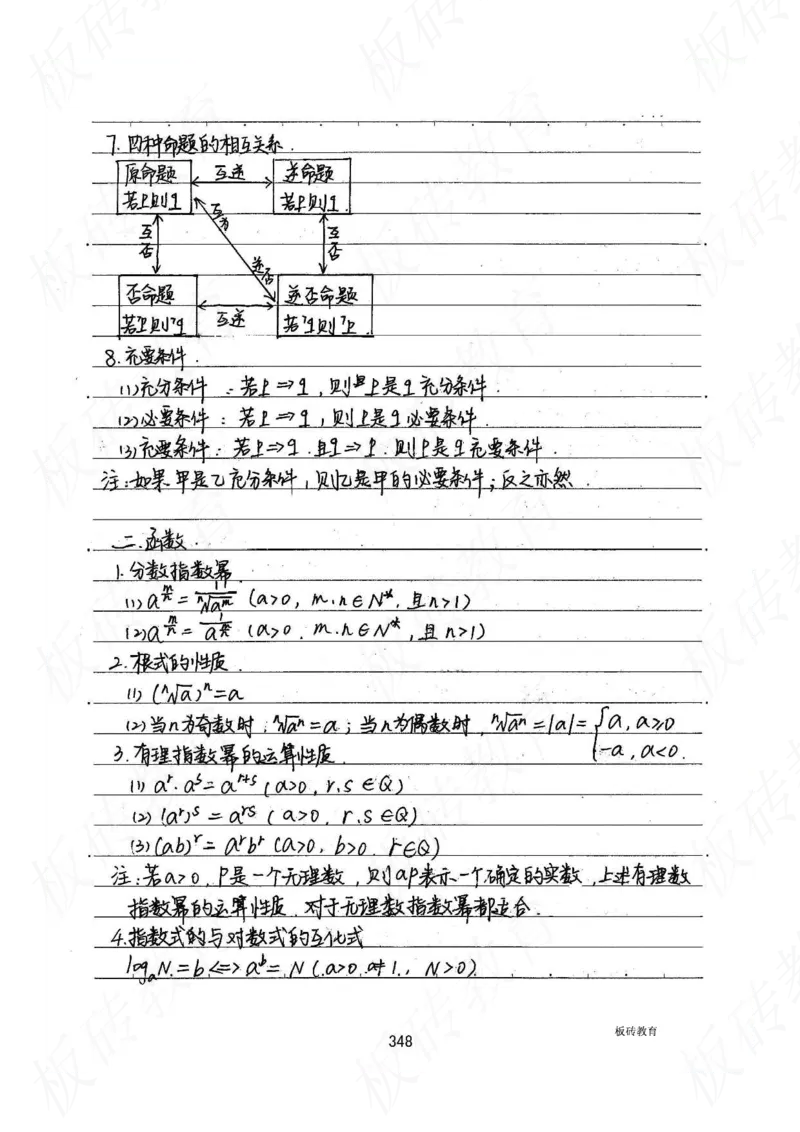 7. 四种命题的相互关系.
原命题 互逆 逆命题
若p则q 若p则q
互为
互否 互否
逆否
否命题 逆否命题
若¬p则¬q 互逆 若¬q则¬p
8. 充要条件.
(1)充分条件:若p⇒q,则p是q充分条件.
(2)必要条件:若p⇒q,则p是q必要条件.
(3)充要条件:若p⇒q.且q⇒p.则p是q充要条件.
注:如果甲是乙充分条件,则乙是甲的必要条件;反之亦然.
二.函数.
1.分数指数幂
(1) a^(m/n) = 1/ⁿ√a^m (a>0, m.n∈N*,且n>1)
(2) a^(m/n) = 1/a^(m/n) (a>0. m.n∈N*,且n>1)
2.根式的性质.
(1) (ⁿ√a)ⁿ=a
(2)当n为奇数时,ⁿ√aⁿ=a;当n为偶数时,ⁿ√aⁿ=|a|={a, a≥0
-a, a<0.
3.有理指数幂的运算性质.
(1) a^r·a^s=a^(r+s) (a>0, r,s∈Q)
(2) (a^r)^s=a^(rs) (a>0, r.s∈Q)
(3) (ab)^r=a^r b^r (a>0, b>0. r∈Q)
注:若a>0,P是一个无理数,则aP表示一个确定的实数,上述有理数
指数幂的运算性质.对于无理数指数幂都适合.
4.指数式的与对数式的互化式
logₐN=b⇔a^b=N (a>0.a≠1., N>0).
348
板砖教育